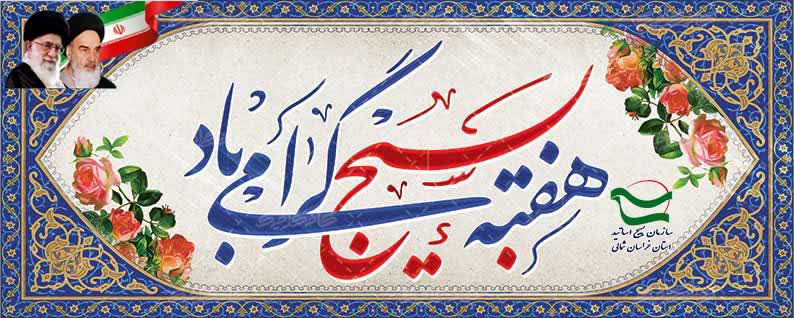 هفته بسیج گرامی باد
سازمان بسیج اساتید
استان خراسان شمالی